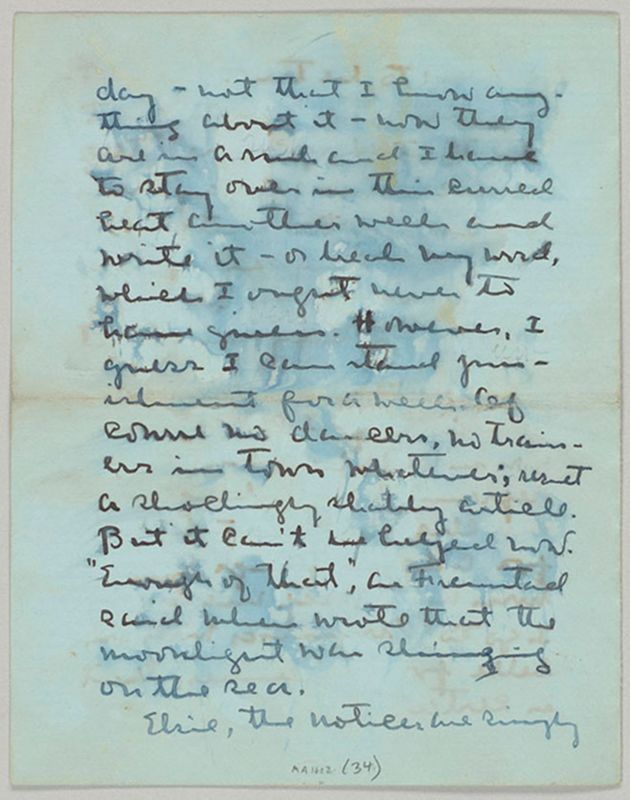 day - not that I know any-
thing about it - now they
are in a rush and I have
to stay over in this cursed
heat another week and
write it - or break my word,
which I ought never to
have given. However, I
guess I can stand pun-
ishment for a week. Of
course no dancers, no train-
ers in town whatever; result
a shockingly shabby article.
But it can't be helped now.
"Enough of that", as Fremstad
said when wrote that the
moonlight was shining
on the sea.
Elsie, the notices are simply
MA 1602 (34)